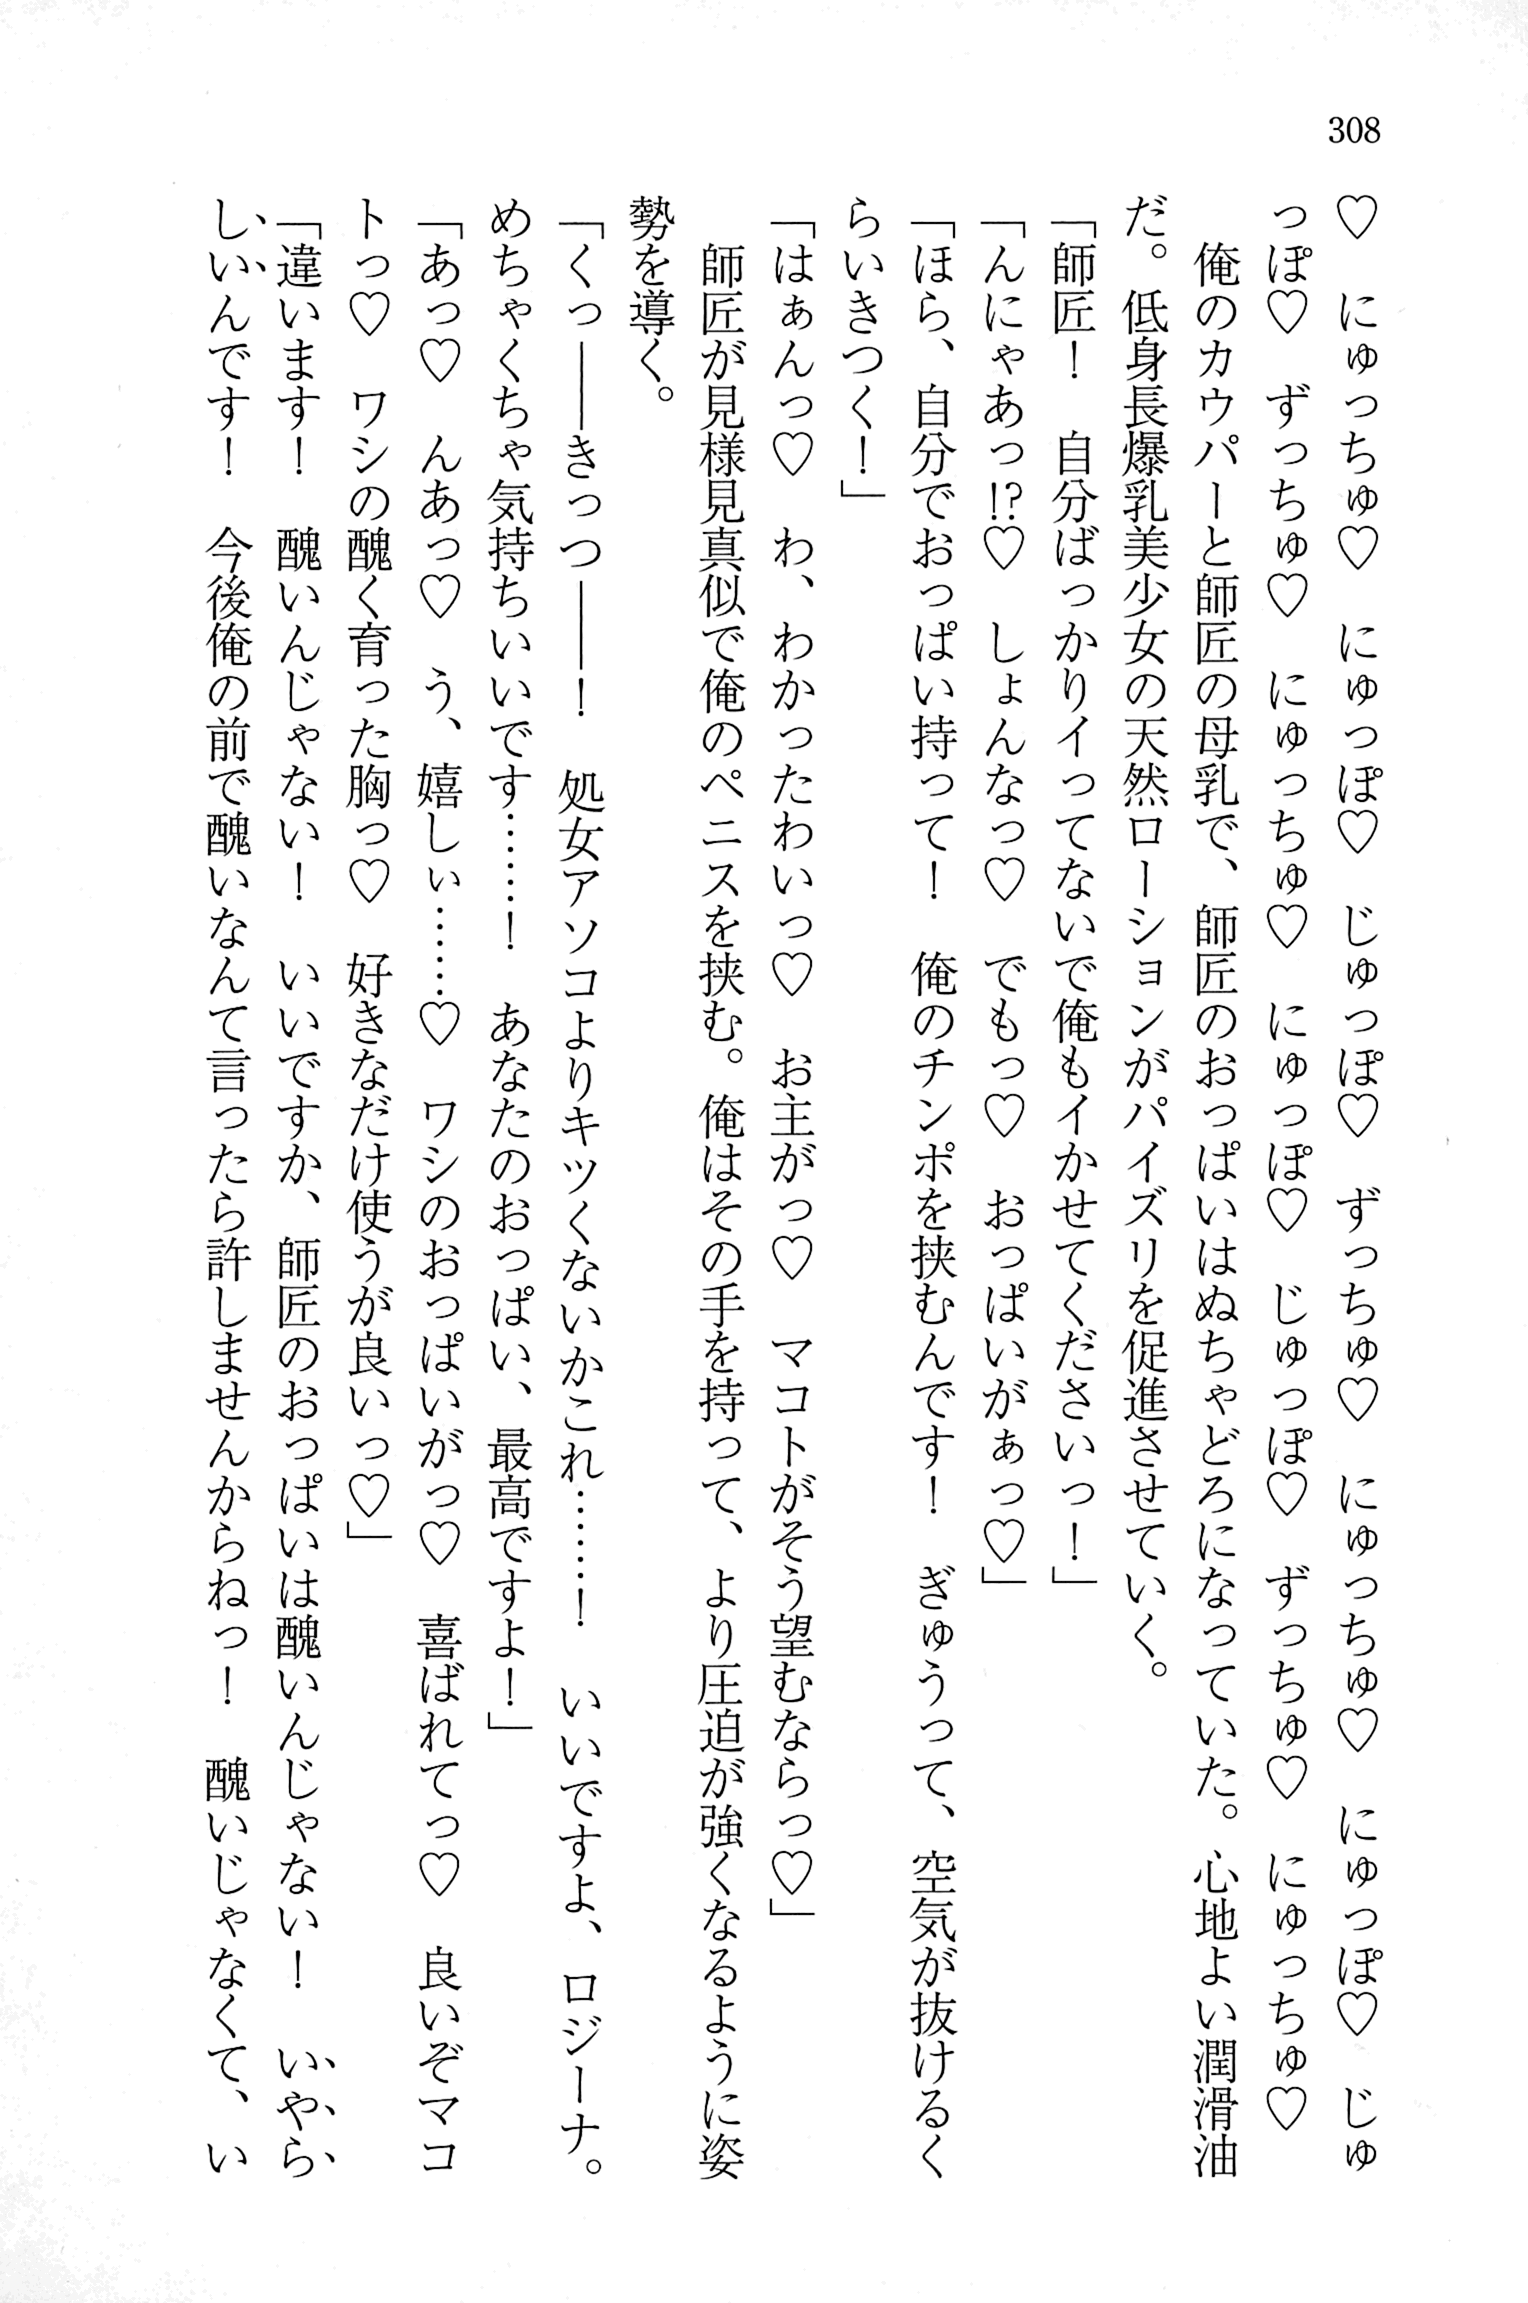 308
♡　にゅっちゅ♡　にゅっぽ♡　じゅっぽ♡　ずっちゅ♡　にゅっちゅ♡　にゅっぽ♡　じゅ
っぽ♡　ずっちゅ♡　にゅっちゅ♡　にゅっぽ♡　じゅっぽ♡　ずっちゅ♡　にゅっちゅ♡
　俺のカウパーと師匠の母乳で、師匠のおっぱいはぬちゃどろになっていた。心地よい潤滑油
だ。低身長爆乳美少女の天然ローションがパイズリを促進させていく。
「師匠！　自分ばっかりイってないで俺もイかせてくださいっ！」
「んにゃあっ!?♡　しょんなっ♡　でもっ♡　おっぱいがぁっ♡」
「ほら、自分でおっぱい持って！　俺のチンポを挟むんです！　ぎゅうって、空気が抜けるく
らいきつく！」
「はぁんっ♡　わ、わかったわいっ♡　お主がっ♡　マコトがそう望むならっ♡」
　師匠が見様見真似で俺のペニスを挟む。俺はその手を持って、より圧迫が強くなるように姿
勢を導く。
「くっ――きっつ――！　処女アソコよりキツくないかこれ……！　いいですよ、ロジーナ。
めちゃくちゃ気持ちいいです……！　あなたのおっぱい、最高ですよ！」
「あっ♡　んあっ♡　う、嬉しぃ……♡　ワシのおっぱいがっ♡　喜ばれてっ♡　良いぞマコ
トっ♡　ワシの醜く育った胸っ♡　好きなだけ使うが良いっ♡」
「違います！　醜いんじゃない！　いいですか、師匠のおっぱいは醜いんじゃない！　いやら
しいんです！　今後俺の前で醜いなんて言ったら許しませんからねっ！　醜いじゃなくて、い